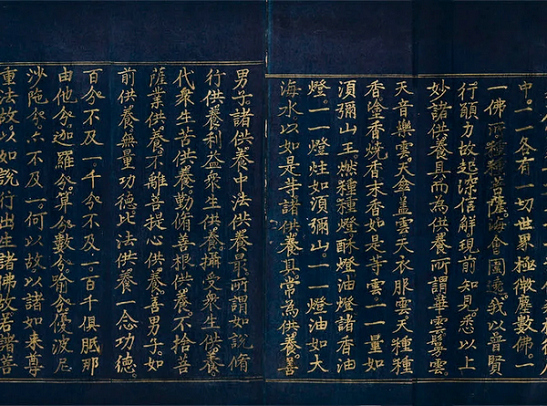 中。一一各有一切世界極微塵數佛。一
一佛所種種菩薩。海會圍遶。我以普賢
行願力故起深信解現前知見。悉以上
妙諸供養具而為供養所謂華雲鬘雲
天音樂雲天傘蓋雲天衣服雲天種種
香塗香燒香末香如是等雲。一一量如
湏彌山王。燃種種燈酥燈油燈諸香油
燈。一一燈炷如湏彌山。一一燈油如大
海水以如是等諸供養具。常為供養。善
男子。諸供養中法供養最。所謂如說脩
行供養利益衆生供養攝受衆生供養
代衆生苦供養勤脩善根供養。不捨菩
薩業供養不離菩提心供養善男子。如
前供養無量功德。比法供養一念功德。
百分不及一。千分不及一。百千俱胝那
由他分迦羅分。算分數分。喻分優波尼
沙陀分。亦不及一。何以故。以諸如來尊
重法故以如說行出生諸佛故若諸菩